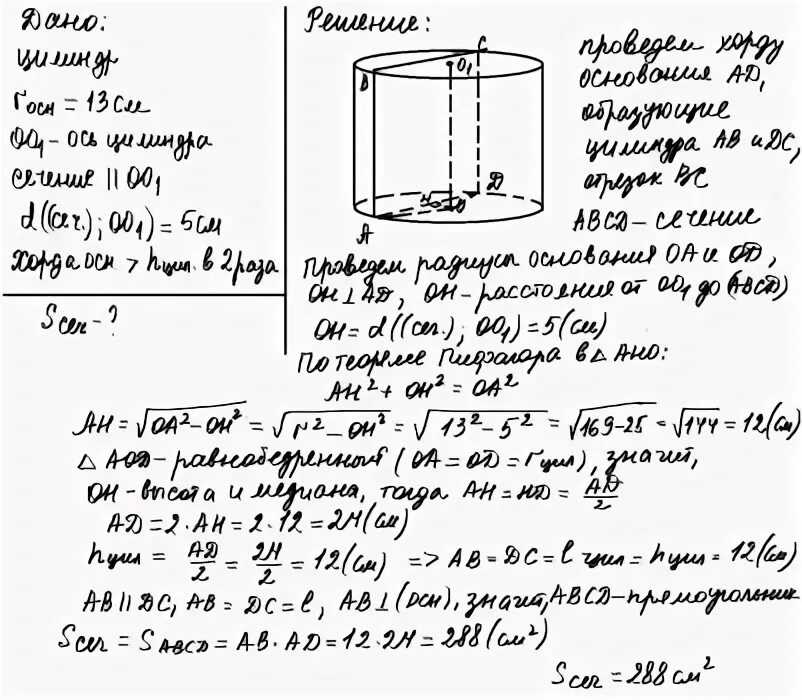 Дано:
цилиндр
rосн = 13 см
OO₁ - ось цилиндра
сечение || OO₁
d((сеч.); OO₁) = 5 см
хорда осн > hцил. в 2 раза
Sсеч - ?
Решение:
C
O₁
B
H
O
D
A
проведем хорду
основания AD,
образующие
цилиндра AB и DC,
отрезок BC
ABCD - сечение
Проведем радиусы основания OA и OD,
OH ⊥ AD, OH - расстояния от OO₁ до (ABCD)
OH = d((сеч.); OO₁) = 5 (см)
По теореме Пифагора в △ AHO:
AH² + OH² = OA²
AH = √OA² - OH² = √r² - OH² = √13² - 5² = √169 - 25 = √144 = 12 (см)
△ AOD - равнобедренный (OA = OD = rцил), значит,
OH - высота и медиана, тогда AH = HD = AD/2
AD = 2 · AH = 2 · 12 = 24 (см)
hцил = AD/2 = 24/2 = 12 (см) => AB = DC = l цил = hцил = 12 (см)
AB || DC, AB = DC = l, AB ⊥ (осн), значит, ABCD - прямоугольник
Sсеч = SABCD = AB · AD = 12 · 24 = 288 (см²)
Sсеч = 288 см²